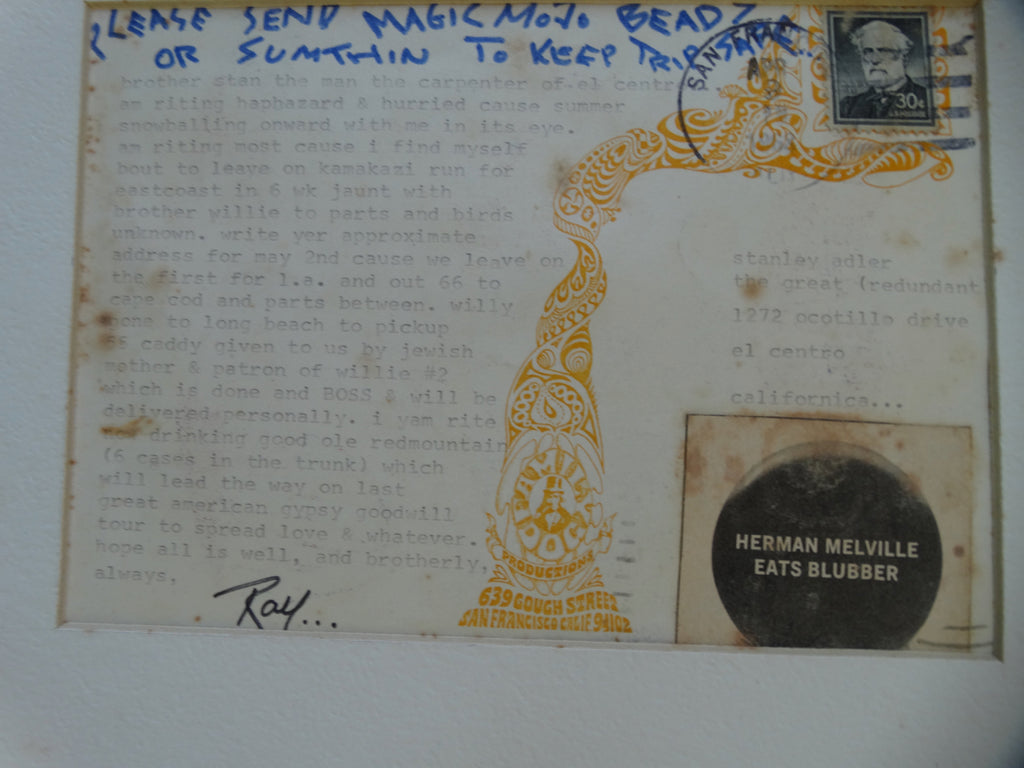 PLEASE SEND MAGIC MOJO BEADS
OR SUMTHIN TO KEEP TRIP SAFE...
brother stan the man the carpenter of el centro
am riting haphazard & hurried cause summer
snowballing onward with me in its eye.
am riting most cause i find myself
bout to leave on kamakazi run for
eastcoast in 6 wk jaunt with
brother willie to parts and birds
unknown. write yer approximate
address for may 2nd cause we leave on
the first for l.a. and out 66 to
cape cod and parts between. willy
gone to long beach to pickup
caddy given to us by jewish
mother & patron of willie #2
which is done and BOSS & will be
delivered personally. i yam rite
now drinking good ole redmountain
(6 cases in the trunk) which
will lead the way on last
great american gypsy goodwill
tour to spread love & whatever.
hope all is well, and brotherly,
always,
Ray...
SAN FRAN
APR
30¢
stanley adler
the great (redundant
1272 ocotillo drive
el centro
californica...
FAMILY DOG
PRODUCTIONS
639 GOUGH STREET
SAN FRANCISCO CALIF 94102
HERMAN MELVILLE
EATS BLUBBER